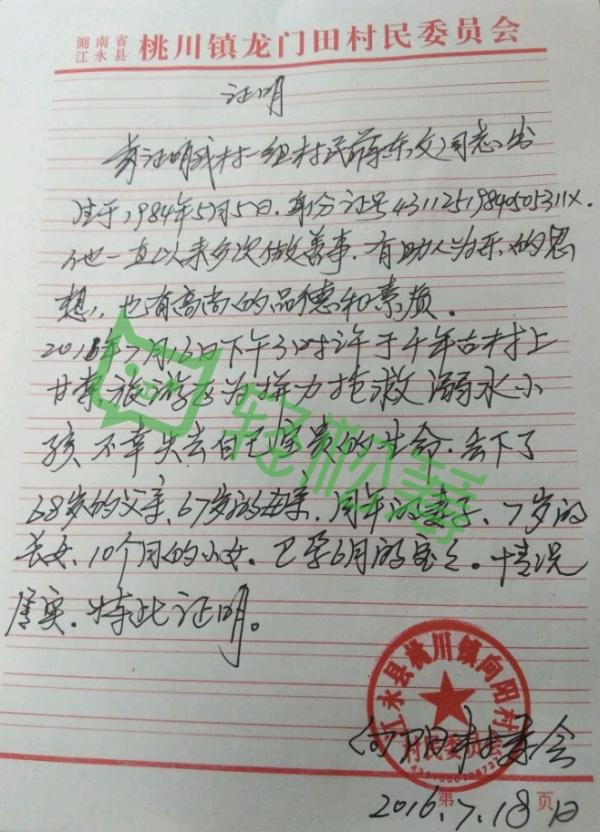 湖南省
江永县 桃川镇龙门田村民委员会
证明
兹证明我村一组村民蒋东文同志出
生于1984年5月5日.身份证号43112519840505311X.
他一直以来多次做善事.有助人为乐的思
想,也有高尚的品德和素质。
2016年7月16日下午3时许于千年古村上
甘棠旅游区为拼力抢救溺水小
孩不幸失去自己宝贵的生命.丢下了
68岁的父亲、67岁的母亲、同年的妻子、7岁的
长女、10个月的小女、已孕6月的宝宝。情况
属实.特此证明。
轻松筹
江永县桃川镇向阳村
村民委员会
向阳村委会
第 页
2016.7.18日